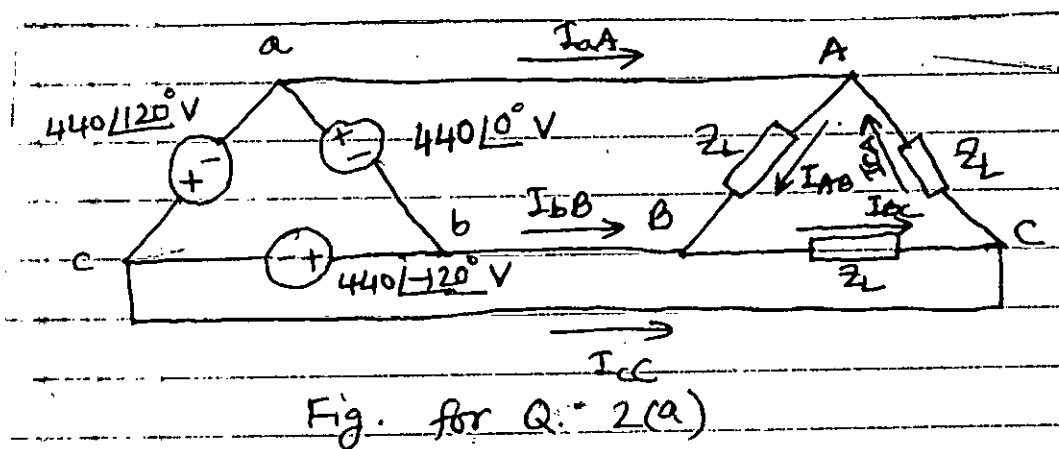 I_aA
a
A
440∠120° V
440∠0° V
Z_L
I_AB
I_CA
Z_L
I_bB
I_BC
c
b
B
C
440∠-120° V
Z_L
I_cC
Fig. for Q. 2(a)